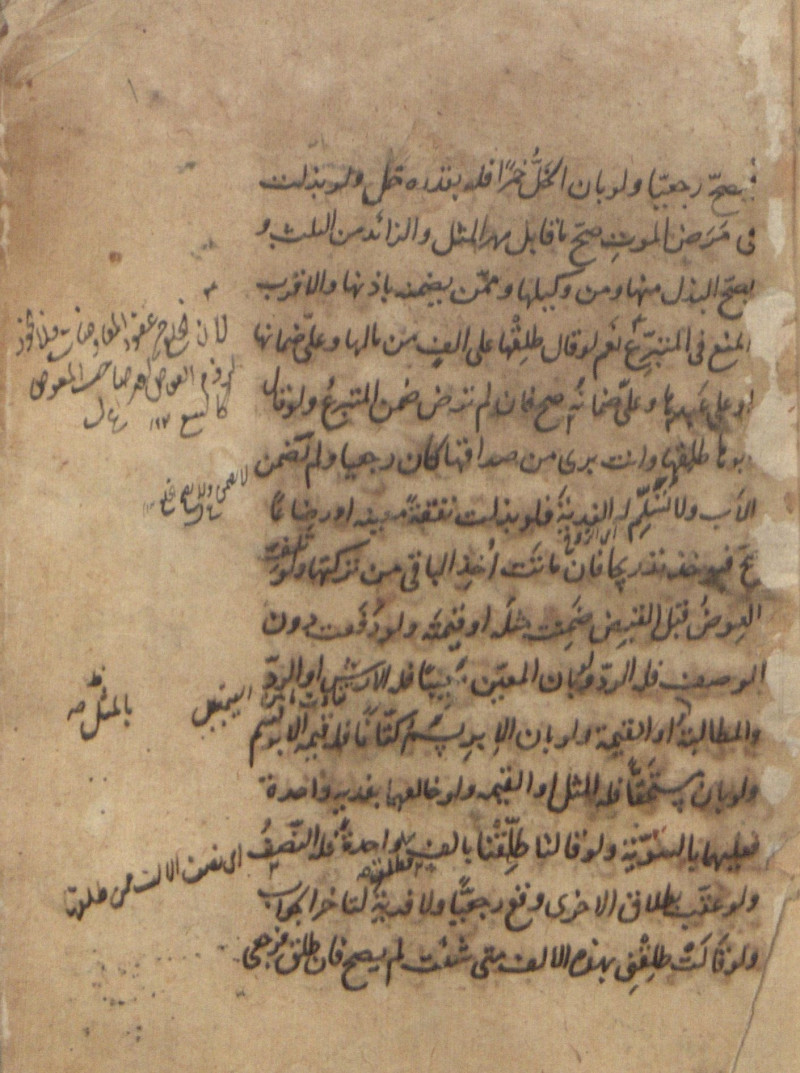 يصحّ رجعيّا ولو بان الخلّ خمرًا فله بقدره خل ولو بذلت
فى مَرَض الموتِ صحّ ما قابل مهر المثل والزائد من الثلث و
يصحّ البذل منها ومن وكيلها وممّن يضمنه باذنها والاقرب
المنع فى المتبرِّع نعم لو قال طلِّقْها على الفٍ من مالها وعلىّ ضمانها
او على عبدها وعلىّ ضمانُه صح فان لم ترض ضمن المتبرعُ ولو قال
ابوها طلِقها وانت برى من صداقها كان رجعيا ولم يَضمن
الأب ولا تُسَلِّم له الفدية فلو بذلت نفقةً معينه او رضاعًا
صَحّ فيوخذ تدريجا فان ماتت أُخذ الباقى من تركتها ولو تلف
العِوضُ قبل القبض ضَمِنت مثلَه او قيمتَه ولو دُفعت دون
الوصف فله الردّ ولو بان المعيّن مَعيبًا فله الارش او الردّ
والمطالبةُ او القيمة ولو بان الابريسَم كتّانًا فله قيمة الابريسم
ولو بان مستَحَقًّا فله المثل او القيمه ولو خالعهما بفديهٍ واحدة
فعليهما بالسَّوِيّة ولو قالتا طَلِّقْنا بالفٍ فطلق واحدةً فله النّصفُ
ولو عقّب بطلاق الاخرى وقع رجعيًّا ولا فديةَ لتاخر الجواب
ولو قالَتْ طلِقْنِى بهذه الالف متى شئت لم يصح فان طلق فرجعى
لان الخلع من عقود المعاوضات فلا يجوز
لزوم العوض لغير صاحب المعوض
كالبيع
بالمثل صح
اى نصف الالف ممن طلقها